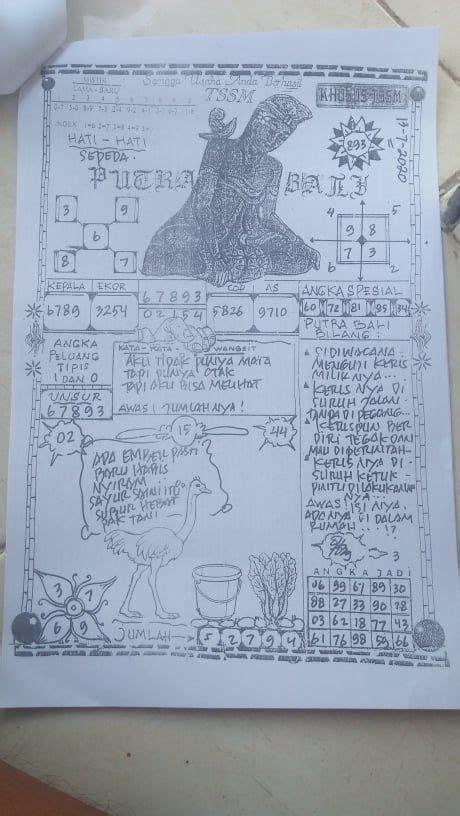 Semoga Usaha Anda Berhasil
MISTIK
LAMA - BARU
TSSM
KHUSUS TSSM
INDEX
17-7-2020
893
HATI - HATI
SEPEDA.
PUTRA BALI
3 9
6
8 7
4 5
9 8
7 3
6 2
KEPALA EKOR
6789 3254
67893
02154
COP AS
5826 9710
ANGKA SPESIAL
60 72 81 95 34
ANGKA
PELUANG
TIPIS
1 DAN 0
UNSUR
67893
KATA - KATA - WANGSIT
AKU TIDAK PUNYA MATA
TAPI PUNYA OTAK
TAPI AKU BISA MELIHAT
AWAS! JUMLAHNYA!
PUTRA BALI
BILANG:
SIDIWACANA
MENGUJI KERIS
MILIKNYA...
KERISNYA DI
SURUH JALAN
TANPA DI PEGANG...
KERISPUN BER
DIRI TEGAK DAN
MAU DIPERINTAH
KERISNYA DI
SURUH KETUK
PINTU DILAKUKANNYA
AWAS! ISI NYA.
ADANYA DI DALAM
RUMAH...!?
02 15 44
ADA EMBER PASTI
BARU HABIS
NYIRAM
SAYUR SAWI ITU
SUBUR HEBAT
PAK TANI
3
ANGKA JADI
06 99 67 89 30
88 27 33 90 28
03 62 18 77 43
61 76 98 59 66
3 7
6 9
JUMLAH → 5 2 7 9 4